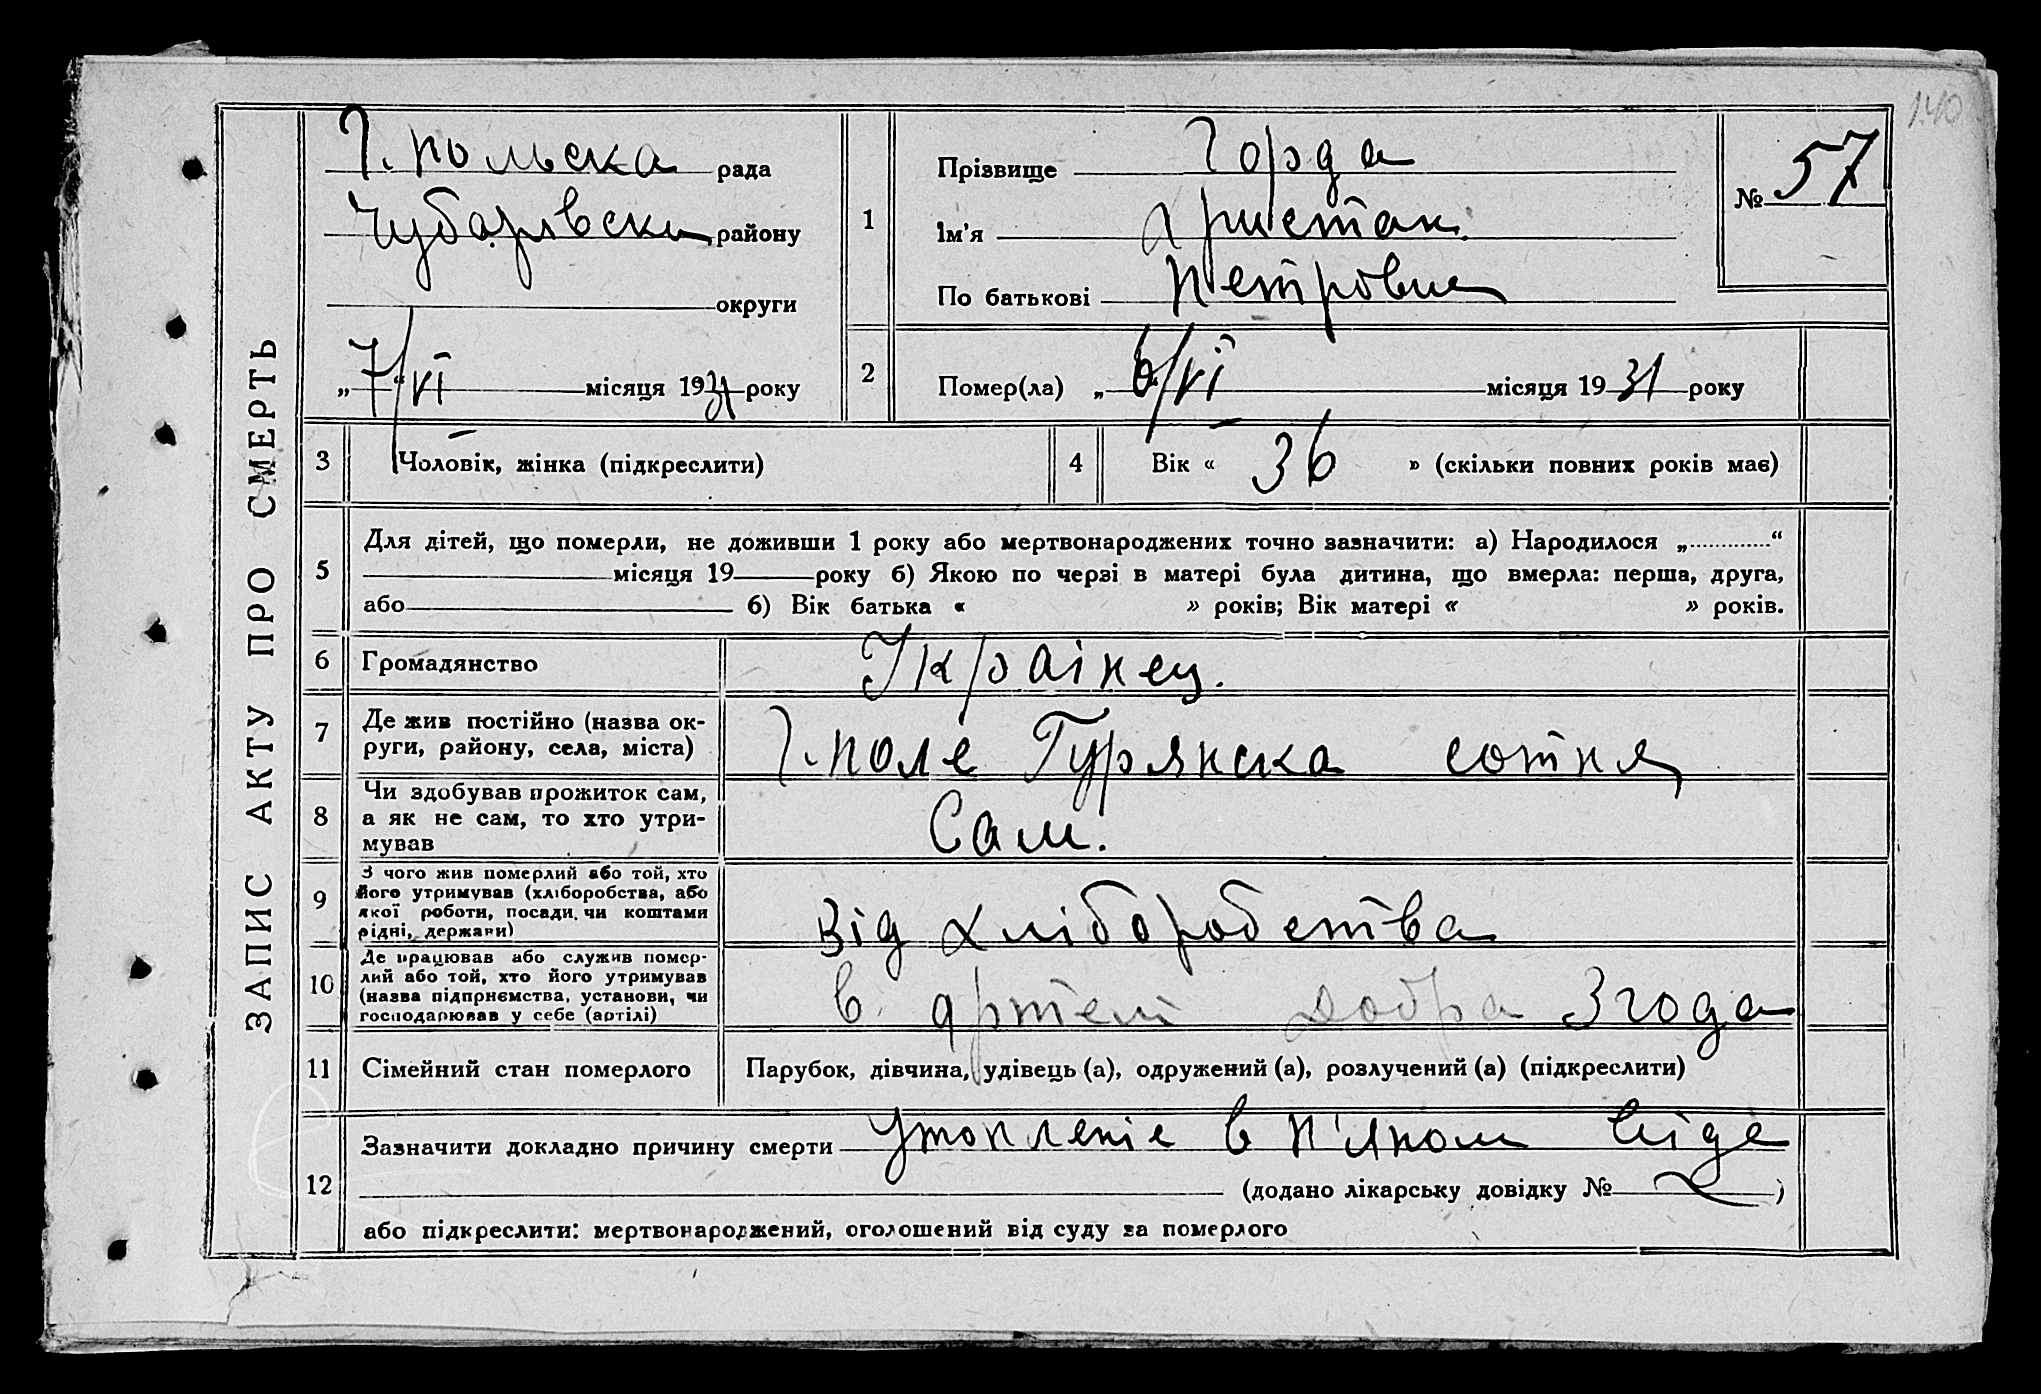 140
ЗАПИС АКТУ ПРО СМЕРТЬ
Г. польска рада
Чубарівськ району
округи
„7“/VI місяця 1931 року
1
Прізвище Горда
Ім'я
По батькові Петрович
№ 57
2
Помер(ла) „6/VI місяця 1931 року
3 Чоловік, жінка (підкреслити)
4 Вік « 36 » (скільки повних років має)
5
Для дітей, що померли, не доживши 1 року або мертвонароджених точно зазначити: а) Народилося „............“
місяця 19 року б) Якою по черзі в матері була дитина, що вмерла: перша, друга,
або б) Вік батька « » років; Вік матері « » років.
6 Громадянство Українец.
7 Де жив постійно (назва ок-
руги, району, села, міста) Г. поле Гурянска сотня
8 Чи здобував прожиток сам,
а як не сам, то хто утри-
мував Сам.
9 З чого жив померлий або той, хто
його утримував (хліборобства, або
якої роботи, посади, чи коштами
рідні, держави) Від хліборобства
10 Де працював або служив помер-
лий або той, хто його утримував
(назва підприємства, установи, чи
господарював у себе (артілі) в артілі Добра Згода
11 Сімейний стан померлого Парубок, дівчина, удівець (а), одружений (а), розлучений (а) (підкреслити)
12
Зазначити докладно причину смерти утопленіе в п'яном виде
(додано лікарську довідку № )
або підкреслити: мертвонароджений, оголошений від суду за померлого